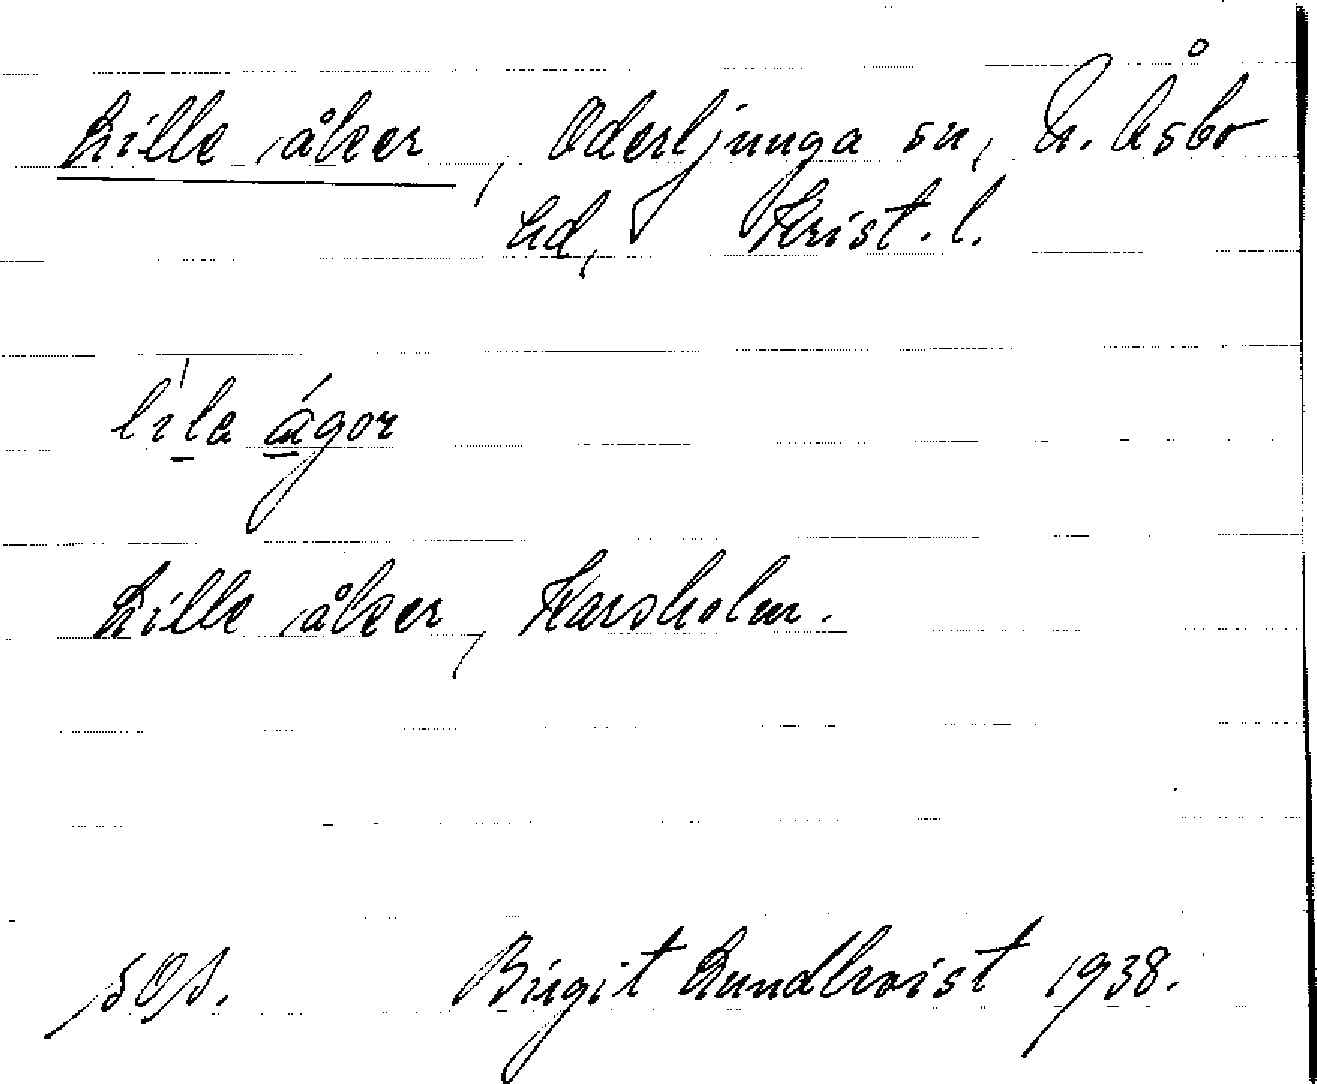 Lille åker, Oderljunga sn, N. Åsbo
hd, Krist. l.
lila ágor
Lille åker, Karsholm.
SOA. Birgit Lundkvist 1938.